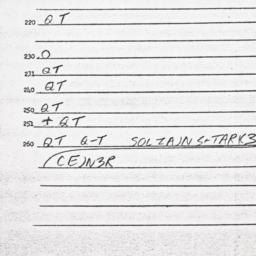 220 QT
230 .O
231 QT
240 QT
250 QT
251 + QT
260 QT Q-T
(CE)N3R